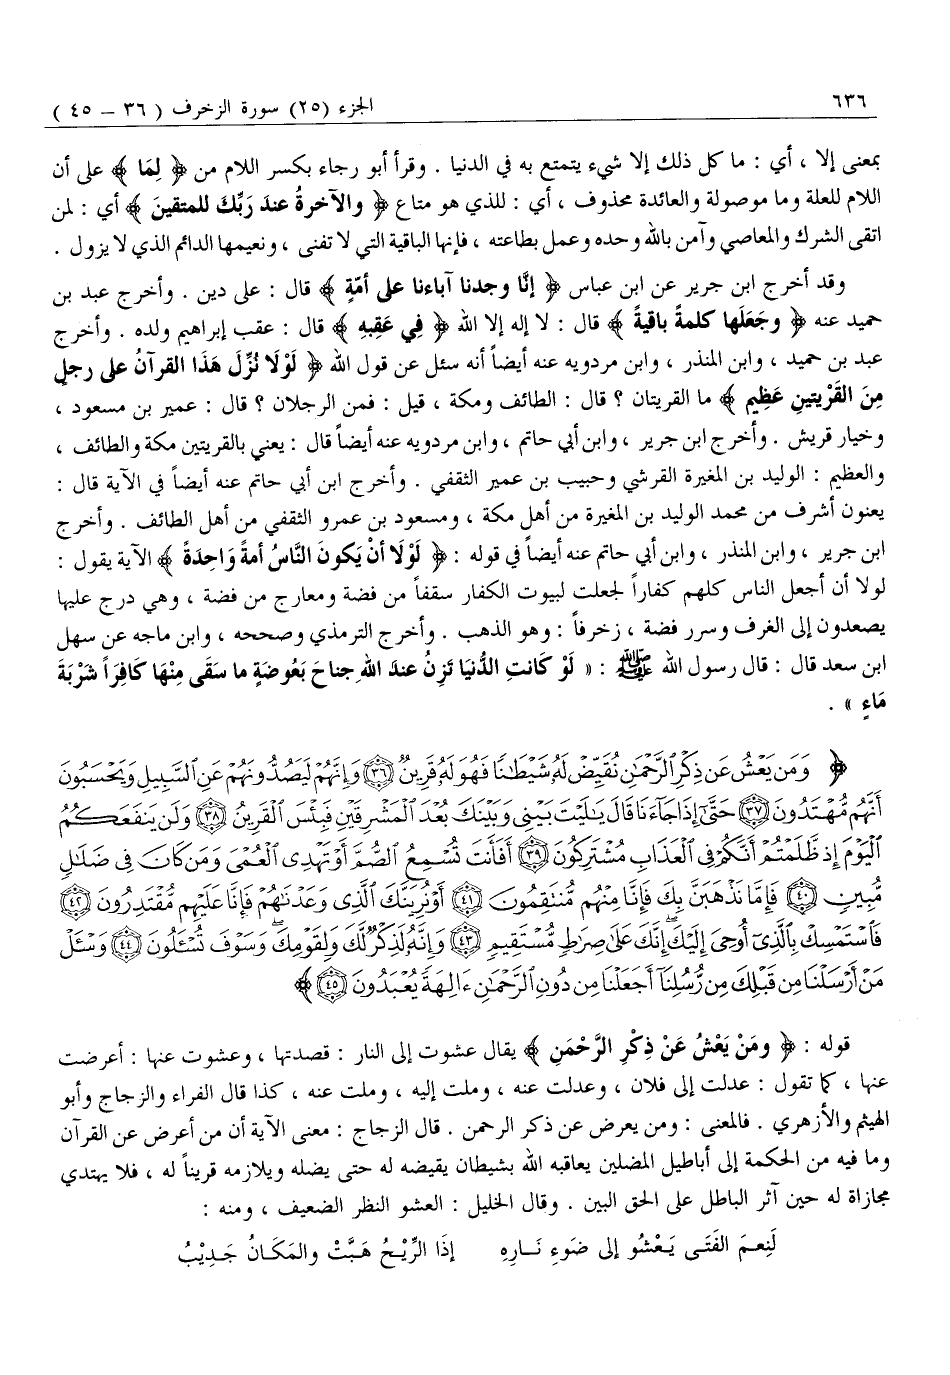 ٦٣٦ الجزء (٢٥) سورة الزخرف ( ٣٦ – ٤٥ )
بمعنى إلا ، أي : ما كل ذلك إلا شيء يتمتع به في الدنيا . وقرأ أبو رجاء بكسر اللام من ﴿ لِمَا ﴾ على أن
اللام للعلة وما موصولة والعائدة محذوف ، أي : للذي هو متاع ﴿ والآخرةُ عندَ رَبِّكَ للمتقينَ ﴾ أي : لمن
اتقى الشرك والمعاصي وآمن بالله وحده وعمل بطاعته ، فإنها الباقية التي لا تفنى ، ونعيمها الدائم الذي لا يزول .
وقد أخرج ابن جرير عن ابن عباس ﴿ إنَّا وجدنا آباءنا على أمّةٍ ﴾ قال : على دين . وأخرج عبد بن
حميد عنه ﴿ وجَعَلَها كلمةً باقيةً ﴾ قال : لا إله إلا الله ﴿ فِي عَقِبِهِ ﴾ قال : عقب إبراهيم ولده . وأخرج
عبد بن حميد ، وابن المنذر ، وابن مردويه عنه أيضاً أنه سئل عن قول الله ﴿ لَوْلَا نُزِّلَ هَذَا القرآنُ على رجلٍ
مِنَ القَرْيتينِ عَظِيمٍ ﴾ ما القريتان ؟ قال : الطائف ومكة ، قيل : فمن الرجلان ؟ قال : عمير بن مسعود ،
وخيار قريش . وأخرج ابن جرير ، وابن أبي حاتم ، وابن مردويه عنه أيضاً قال : يعني بالقريتين مكة والطائف ،
والعظيم : الوليد بن المغيرة القرشي وحبيب بن عمير الثقفي . وأخرج ابن أبي حاتم عنه أيضاً في الآية قال :
يعنون أشرف من محمد الوليد بن المغيرة من أهل مكة ، ومسعود بن عمرو الثقفي من أهل الطائف . وأخرج
ابن جرير ، وابن المنذر ، وابن أبي حاتم عنه أيضاً في قوله : ﴿ لَوْلَا أنْ يَكونَ النَّاسُ أمةً وَاحِدَةً ﴾ الآية يقول :
لولا أن أجعل الناس كلهم كفاراً لجعلت لبيوت الكفار سقفاً من فضة ومعارج من فضة ، وهي درج عليها
يصعدون إلى الغرف وسرر فضة ، زخرفاً : وهو الذهب . وأخرج الترمذي وصححه ، وابن ماجه عن سهل
ابن سعد قال : قال رسول الله ﷺ : « لَوْ كَانتِ الدُّنيَا تَزِنُ عندَ اللهِ جناحَ بَعُوضَةٍ ما سَقَى مِنْهَا كَافِرَاً شَرْبَةَ
مَاءٍ » .
﴿ وَمَن يَعْشُ عَن ذِكْرِ ٱلرَّحْمَٰنِ نُقَيِّضْ لَهُۥ شَيْطَٰنًا فَهُوَ لَهُۥ قَرِينٌ ٣٦ وَإِنَّهُمْ لَيَصُدُّونَهُمْ عَنِ ٱلسَّبِيلِ وَيَحْسَبُونَ
أَنَّهُم مُّهْتَدُونَ ٣٧ حَتَّىٰٓ إِذَا جَآءَنَا قَالَ يَٰلَيْتَ بَيْنِى وَبَيْنَكَ بُعْدَ ٱلْمَشْرِقَيْنِ فَبِئْسَ ٱلْقَرِينُ ٣٨ وَلَن يَنفَعَكُمُ
ٱلْيَوْمَ إِذ ظَّلَمْتُمْ أَنَّكُمْ فِى ٱلْعَذَابِ مُشْتَرِكُونَ ٣٩ أَفَأَنتَ تُسْمِعُ ٱلصُّمَّ أَوْ تَهْدِى ٱلْعُمْىَ وَمَن كَانَ فِى ضَلَٰلٍ
مُّبِينٍ ٤٠ فَإِمَّا نَذْهَبَنَّ بِكَ فَإِنَّا مِنْهُم مُّنتَقِمُونَ ٤١ أَوْ نُرِيَنَّكَ ٱلَّذِى وَعَدْنَٰهُمْ فَإِنَّا عَلَيْهِم مُّقْتَدِرُونَ ٤٢
فَٱسْتَمْسِكْ بِٱلَّذِىٓ أُوحِىَ إِلَيْكَ ۖ إِنَّكَ عَلَىٰ صِرَٰطٍ مُّسْتَقِيمٍ ٤٣ وَإِنَّهُۥ لَذِكْرٌ لَّكَ وَلِقَوْمِكَ ۖ وَسَوْفَ تُسْـَٔلُونَ ٤٤ وَسْـَٔلْ
مَنْ أَرْسَلْنَا مِن قَبْلِكَ مِن رُّسُلِنَآ أَجَعَلْنَا مِن دُونِ ٱلرَّحْمَٰنِ ءَالِهَةً يُعْبَدُونَ ٤٥ ﴾
قوله : ﴿ ومَنْ يَعْشُ عَنْ ذِكْرِ الرَّحْمَنِ ﴾ يقال عشوت إلى النار : قصدتها ، وعشوت عنها : أعرضت
عنها ، كما تقول : عدلت إلى فلان ، وعدلت عنه ، وملت إليه ، وملت عنه ، كذا قال الفراء والزجاج وأبو
الهيثم والأزهري . فالمعنى : ومن يعرض عن ذكر الرحمن . قال الزجاج : معنى الآية أن من أعرض عن القرآن
وما فيه من الحكمة إلى أباطيل المضلين يعاقبه الله بشيطان يقيضه له حتى يضله ويلازمه قريناً له ، فلا يهتدي
مجازاة له حين آثر الباطل على الحق البين . وقال الخليل : العشو النظر الضعيف ، ومنه :
لَنِعمَ الفَتَى يَعْشُو إلى ضَوءِ نَارِهِ إذَا الرِّيْحُ هَبَّتْ والمَكَانُ جَدِيْبُ